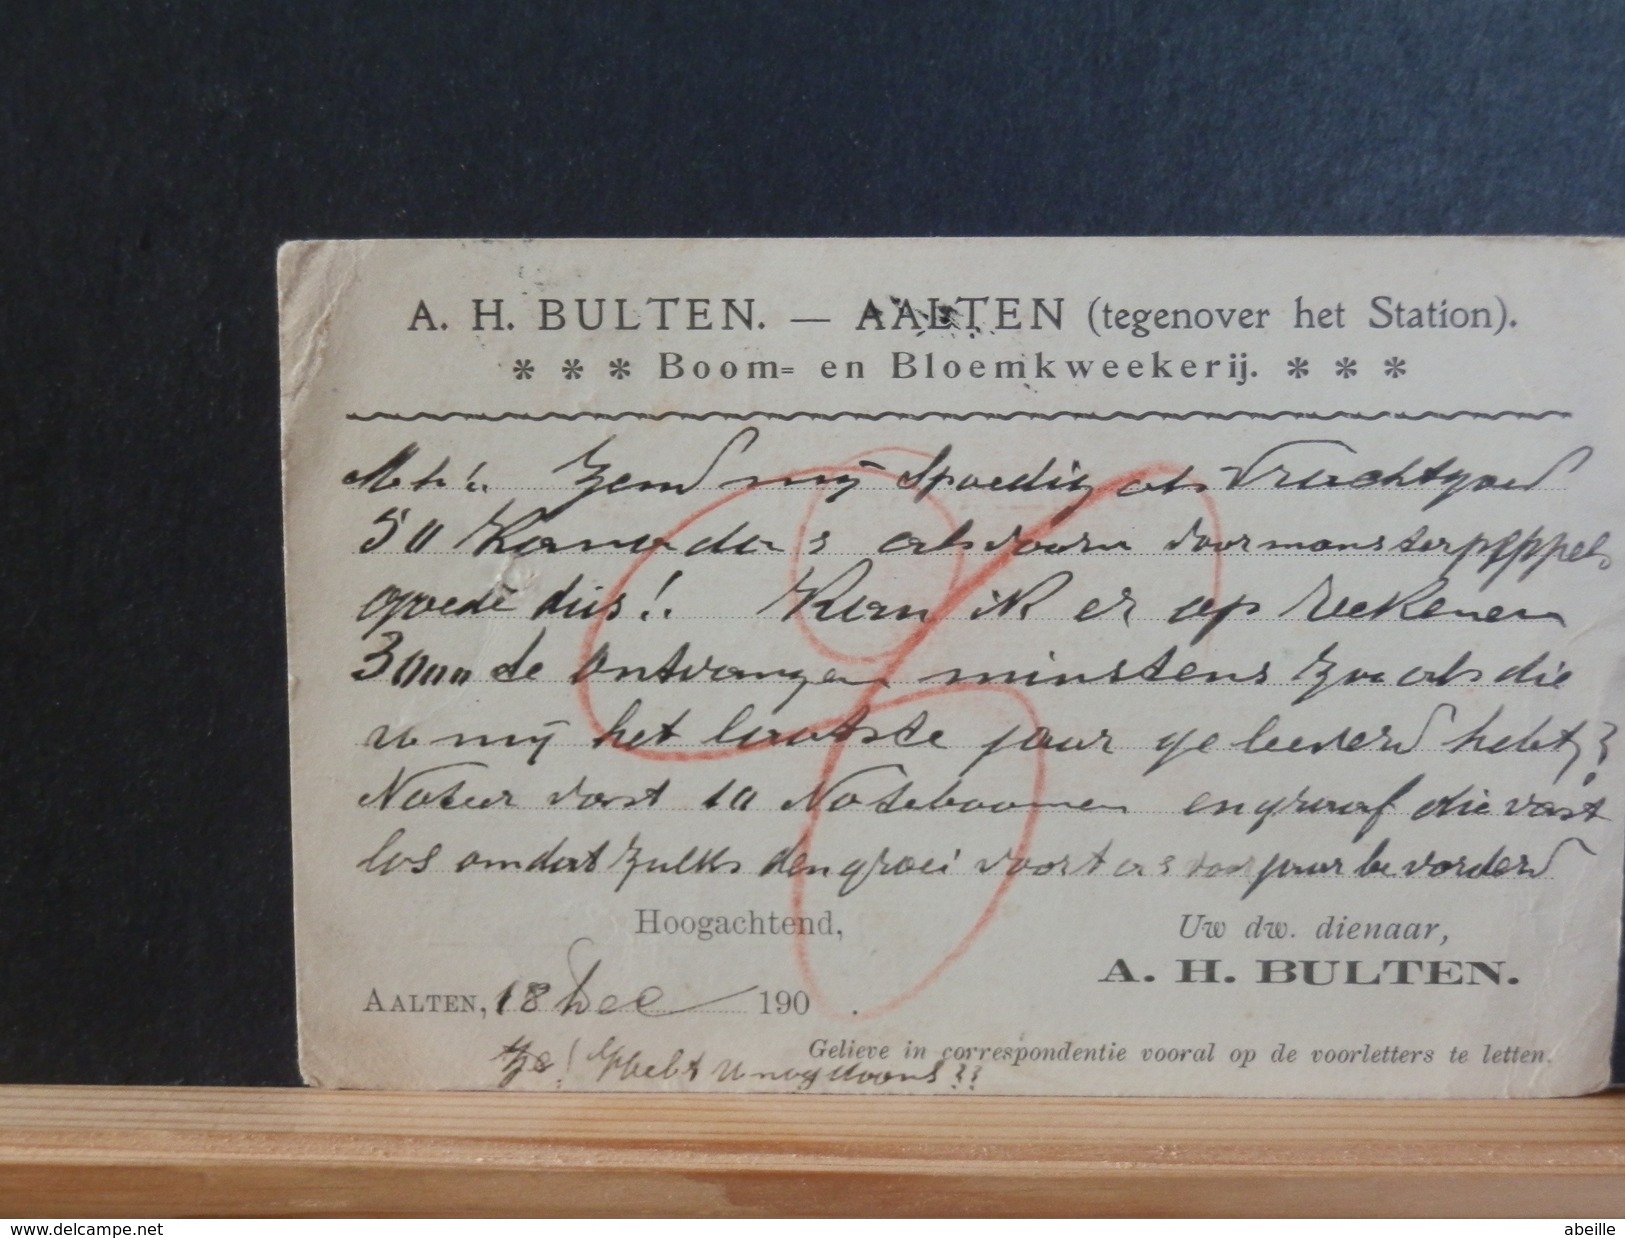 A. H. BULTEN. — AALTEN (tegenover het Station).
* * * Boom= en Bloemkweekerij. * * *
Zend mij Spoedig als Vrachtgoed
50 Kanada's als voorn
goede dus! Kan ik er op rekenen
3000 te ontvangen minstens zooals die
u mij het laatste jaar geleeverd hebt?
10 Noteboomen en graaf die vast
los omdat zulks den groei voorjaar bevorderd
Hoogachtend,
Uw dw. dienaar,
A. H. BULTEN.
AALTEN, 18 Dec 190 .
Gelieve in correspondentie vooral op de voorletters te letten.
hebt u nog
www.delcampe.net
abeille